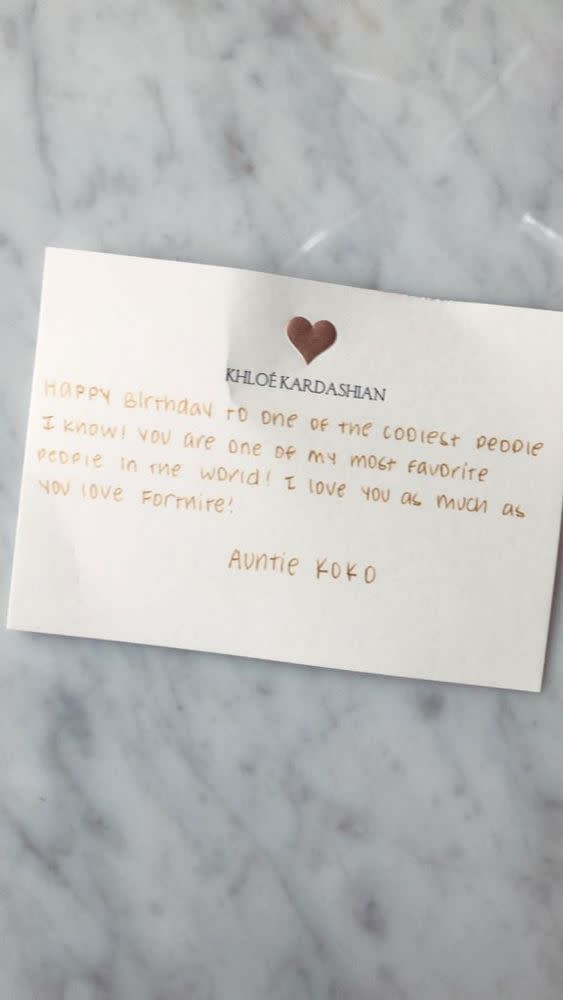 KHLOÉ KARDASHIAN
Happy Birthday to one of the coolest people
I know! You are one of my most favorite
people in the world! I love you as much as
you love Fortnite!
Auntie KoKo